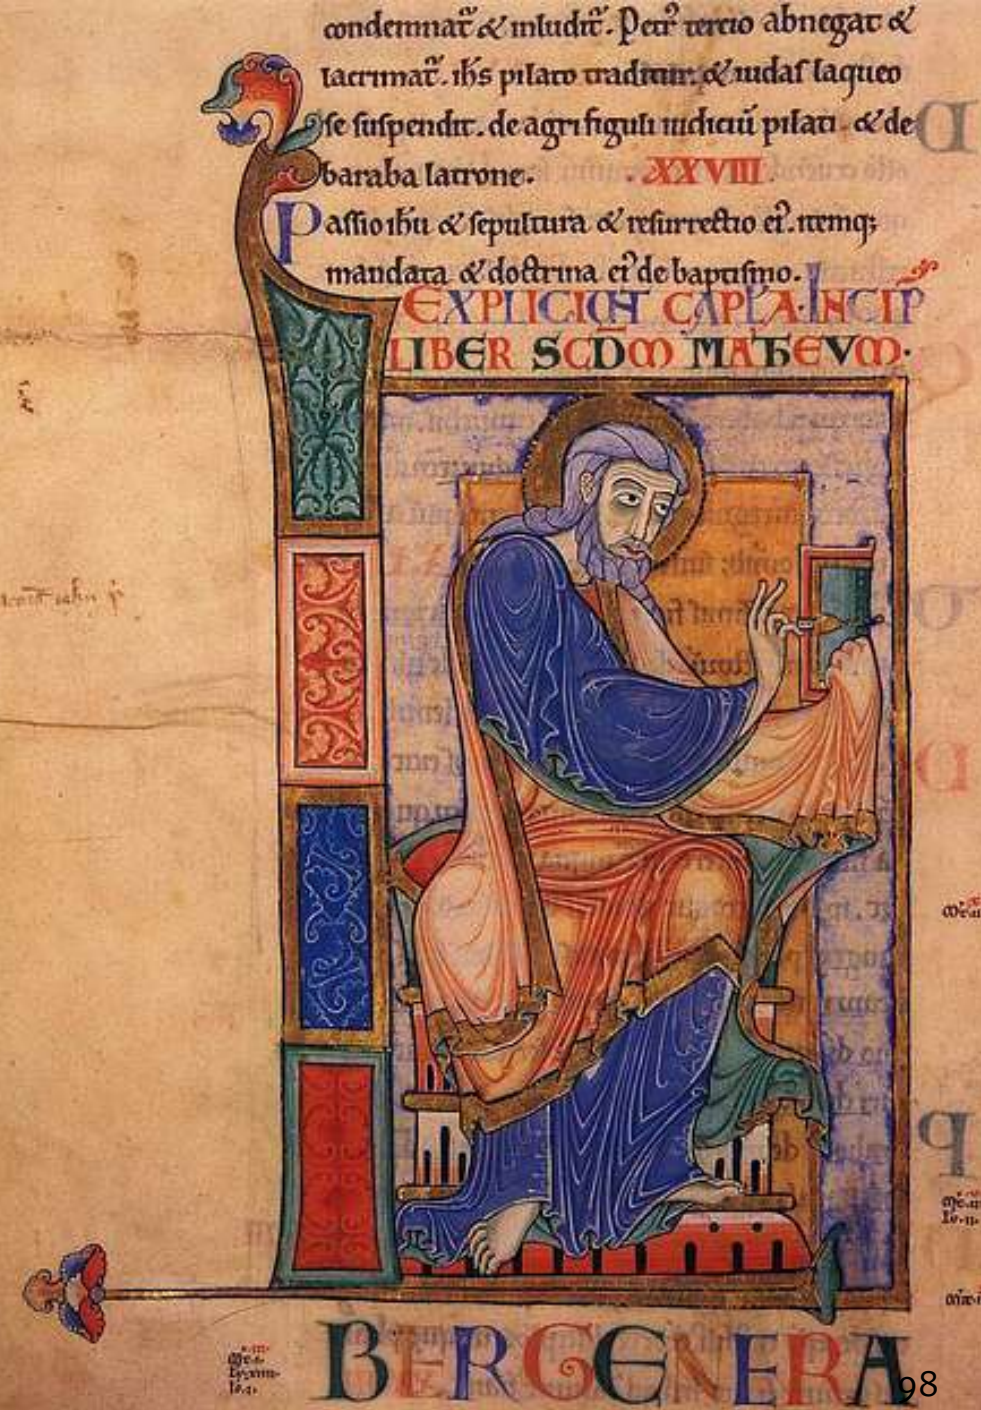 condemnat̃ & inludit̃. Petr᷒ tercio abnegat &
lacrimat̃. ih̅s pilato traditur. & iudas laqueo
se suspendit. de agri figuli iudiciū pilati & de
baraba latrone. .XXVIII.
Passio ih̅u & sepultura & resurrectio ei᷒. itemq;
mandata & doctrina ei᷒ de baptismo.
EXPLICIUNT CAPLA. INCIP
LIBER SCD̅M MATHEVM.
BER GENERA
98